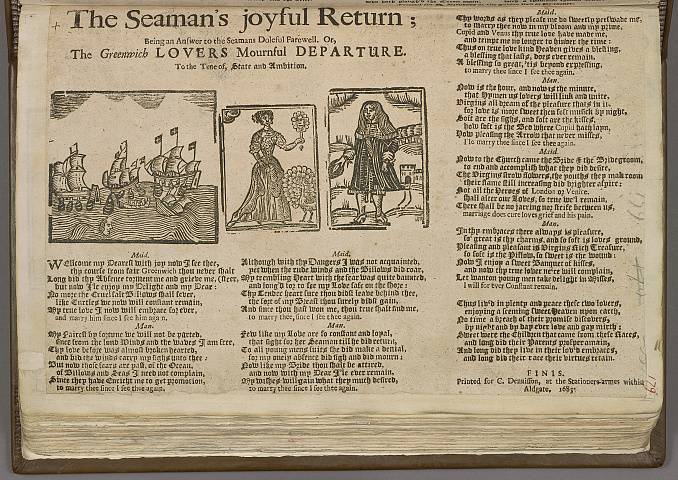 The Seaman's joyful Return;
Being an Answer to the Seamans Doleful Farewell. Or,
The Greenwich LOVERS Mournful DEPARTURE.
To the Tune of, State and Ambition.
Maid.
Wellcome my Dearest with joy now I see thee,
thy course from fair Greenwich thou never shalt steer,
Long did thy Absence torment me and grieve me,
but now I'le enjoy my Delight and my Dear:
No more the Cruel salt Billows shall sever,
like Turtles we now will constant remain,
My true love I now will embrace for ever,
and marry him since I see him again.
Man.
My Fairest by fortune we will not be parted,
since from the loud Winds and the waves I am free,
Thy love before was almost broken hearted,
and oft the winds carry my sighs unto thee:
But now those fears are past, of the Ocean,
of Billows and Seas I need not complain,
Since they have Enricht me to get promotion,
to marry thee since I see thee again.
Maid.
Although with thy Dangers I was not acquainted,
yet when the rude winds and the Billows did roar,
My trembling Heart with the fear was quite daunted,
and long'd for to see my Love safe on the shore:
Thy Tender heart sure thou didst leave behind thee,
the sest of my Breast thou surely didst gain,
And since thou hast won me, thou true shalt find me,
to marry thee, since I see thee again.
Man.
Few like my Love are so constant and loyal,
that sight for her Seaman till he did return,
To all young mens suits she did make a denial,
for my only absence did sigh and did mourn:
Now like my Bride thou shalt be attired,
and now with my Dear I'le ever remain.
My wishes will gain what they much desired,
to marry thee since I see thee again.
Maid.
Thy words as they please me do sweetly perswade me,
to marry thee now in my bloom and my prime,
Cupid and Venus thy true love have made me,
and tempt me no longer to hinder the time:
Thus on true love kind Heaven gives a blessing,
a blessing that lasts, does ever remain.
A blessing so great, 'tis beyond expressing,
to marry thee since I see thee again.
Man.
Now is the hour, and now is the minute,
that Hymen us lovers will link and unite.
Virgins all dream of the pleasure thats in it,
for love is more sweet then soft musick by night,
Soft are the sighs, and soft are the kisses,
how soft is the Bed where Cupid hath layn,
How pleasing the Arrow that never misses,
I'le marry thee since I see thee again.
Maid.
Now to the Church came the Bride & the Bridegroom,
to end and accomplish what they did desire,
The Virgins strow'd flowers, the youths they mak room
their flame still increasing did brighter aspire:
Not all the Heroes of London or Venice,
shall alter our Loves, so true we'l remain,
There shall be no jarring nor strife between us,
marriage does cure lovers grief and his pain.
Man.
In thy embraces there always is pleasure,
so great is thy charms, and so soft is loves ground,
Pleasing and pleasant is Virgins rich Treasure,
so soft is the Pillow, so sweet is the wound:
Now I enjoy a sweet Banquet of kisses,
and now thy true lover ne're will complain,
Let wanton young men take delight in Misses,
I will for ever Constant remain.
Thus liv'd in plenty and peace these two lovers,
enjoying a seeming sweet Heaven upon earth,
No time a breach of their promise discovers,
by night and by day ever love and gay mirth:
Sweet were the Children that came from these Faces,
and long did their Parents prosper amain,
And long did they live in their lov'd embraces,
and long did their rare their virtues retain.
FINIS.
Printed for C. Dennisson, at the Stationers-armes within
Aldgate, 1683